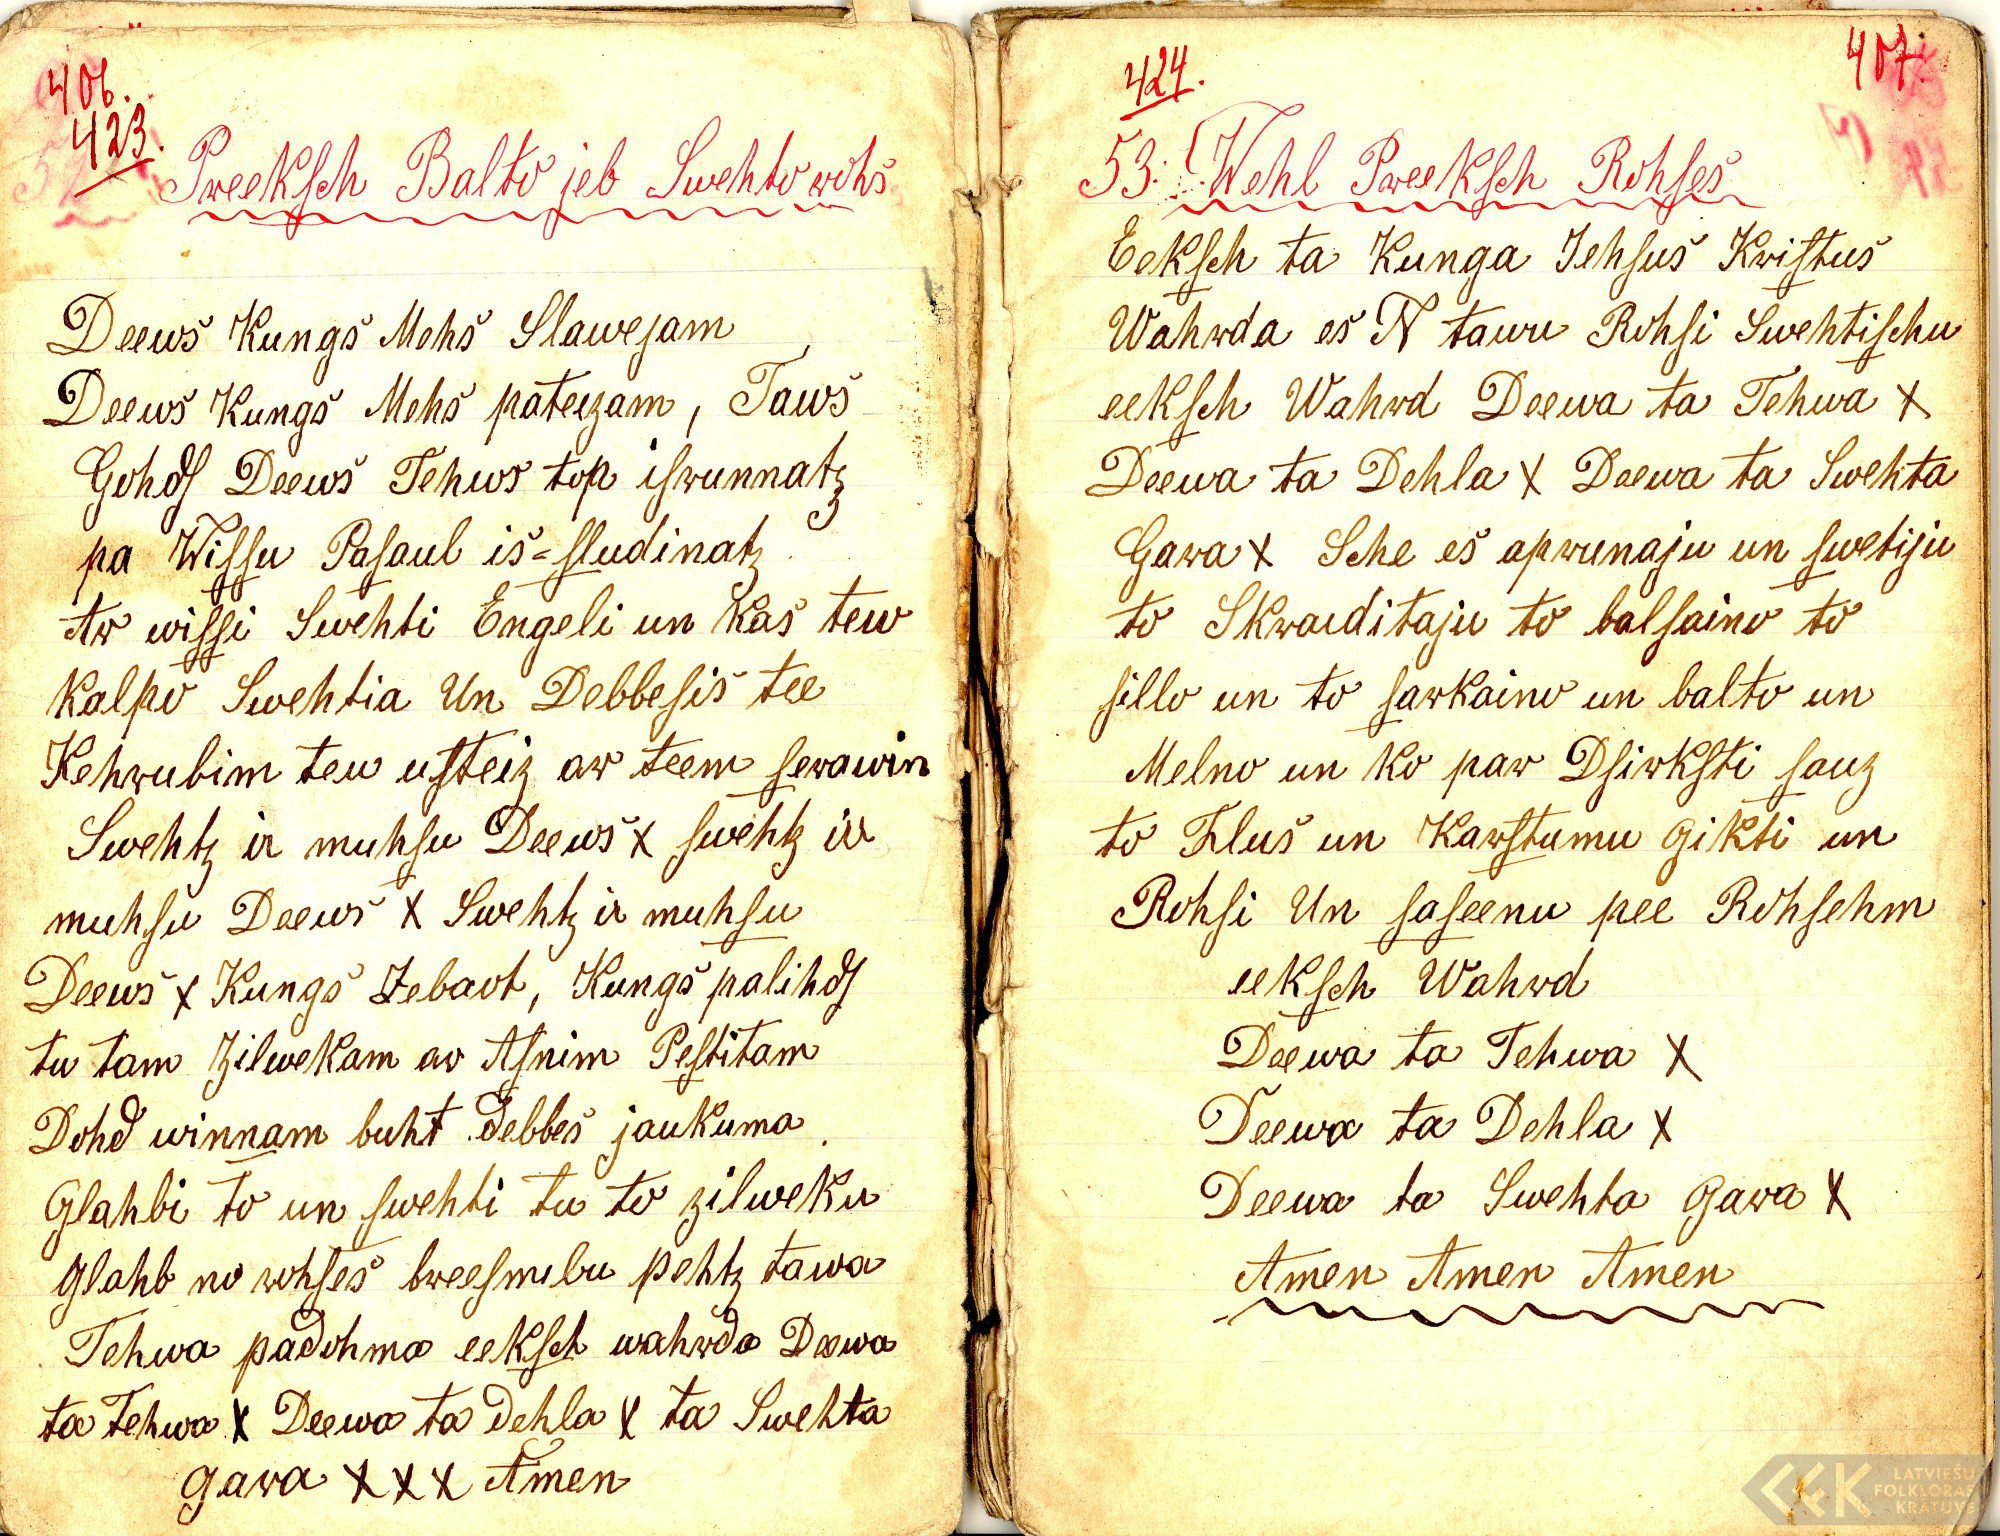 406.
423.
Preeksch Balto jeb Swehto rohs
Deews Kungs Mehs Slawejam
Deews Kungs Mehs pateizam, Taws
Gohds Deews Tehws top isrunnatz
pa Wissu Pasaul is=sludinatz
Ar wissi Swehti Engeli un Kas tew
Kalpo Swehtia Un Debbesis tee
Kehrubim teu usteiz ar teem serawin
Swehtz ir muhsu Deews x swehtz ir
muhsu Deews x Swehtz ir muhsu
Deews x Kungs Zebaot, Kungs palihds
tu tam Zilwekam ar Asnim Pestitam
Dohd winnam buht debbes jaukuma
Glahbi to un swehti tu to zilweku
Glahb no rohses breesmibu pehtz tawa
Tehwa padohma eeksch wahrda Deewa
ta Tehwa x Deewa ta dehla x ta Swehta
gara x x x Amen
424.
407.
53. Wehl Preeksch Rohses
Eeksch ta Kunga Jehsus Kristus
Wahrda es N tawu Rohsi Swehtischu
eeksch Wahrd Deewa ta Tehwa x
Deewa ta Dehla x Deewa ta Swehta
Gara x Sche es aprunaju un swetiju
to Skraiditaju to balsaino to
sillo un to sarkaino un balto un
Melno un ko par Dsirksti sauz
to Flus un Karstumu gikti un
Rohsi Un saseenu pee Rohsehm
eeksch Wahrd
Deewa ta Tehwa x
Deewa ta Dehla x
Deewa ta Swehta gara x
Amen Amen Amen
LATVIEŠU
FOLKLORAS
KRĀTUVE